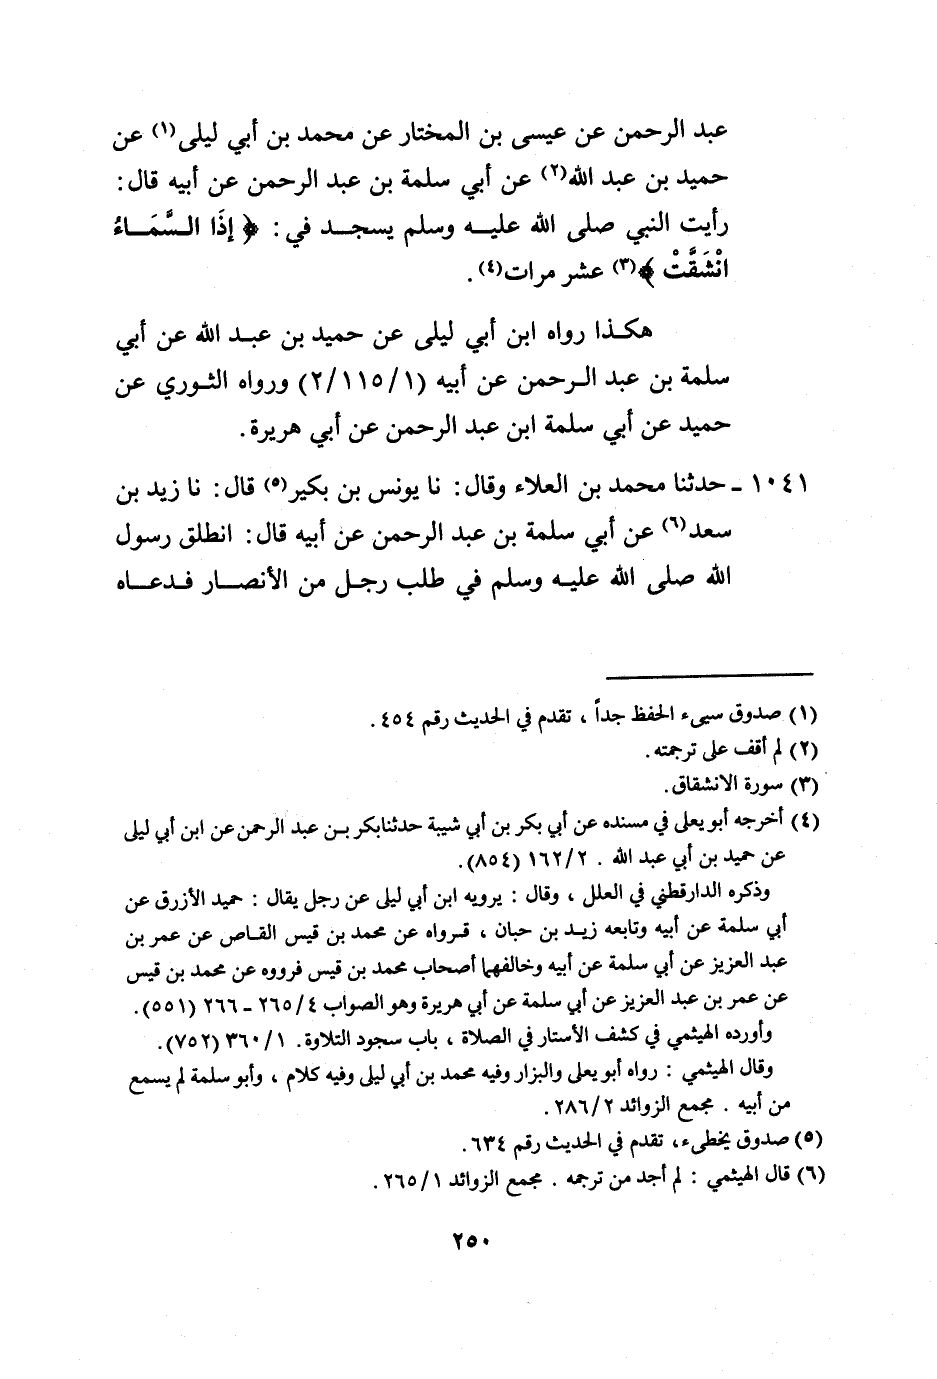 عبد الرحمن عن عيسى بن المختار عن محمد بن أبي ليلى(١) عن
حميد بن عبد الله(٢) عن أبي سلمة بن عبد الرحمن عن أبيه قال:
رأيت النبي صلى الله عليه وسلم يسجد في: ﴿ إذَا السَّمَاءُ
انْشَقَّتْ ﴾(٣) عشر مرات(٤).
هكذا رواه ابن أبي ليلى عن حميد بن عبد الله عن أبي
سلمة بن عبد الرحمن عن أبيه (١/١١٥/٢) ورواه الثوري عن
حميد عن أبي سلمة ابن عبد الرحمن عن أبي هريرة.
١٠٤١ - حدثنا محمد بن العلاء وقال: نا يونس بن بكير(٥) قال: نا زيد بن
سعد(٦) عن أبي سلمة بن عبد الرحمن عن أبيه قال: انطلق رسول
الله صلى الله عليه وسلم في طلب رجل من الأنصار فدعاه
(١) صدوق سيىء الحفظ جداً ، تقدم في الحديث رقم ٤٥٤.
(٢) لم أقف على ترجمته.
(٣) سورة الانشقاق.
(٤) أخرجه أبو يعلى في مسنده عن أبي بكر بن أبي شيبة حدثنابكر بن عبد الرحمن عن ابن أبي ليلى
عن حميد بن أبي عبد الله . ١٦٢/٢ (٨٥٤).
وذكره الدارقطني في العلل ، وقال : يرويه ابن أبي ليلى عن رجل يقال : حميد الأزرق عن
أبي سلمة عن أبيه وتابعه زيد بن حبان ، فرواه عن محمد بن قيس القاص عن عمر بن
عبد العزيز عن أبي سلمة عن أبيه وخالفهما أصحاب محمد بن قيس فرووه عن محمد بن قيس
عن عمر بن عبد العزيز عن أبي سلمة عن أبي هريرة وهو الصواب ٢٦٥/٤ - ٢٦٦ (٥٥١).
وأورده الهيثمي في كشف الأستار في الصلاة ، باب سجود التلاوة. ٣٦٠/١ (٧٥٢).
وقال الهيثمي : رواه أبو يعلى والبزار وفيه محمد بن أبي ليلى وفيه كلام ، وأبو سلمة لم يسمع
من أبيه . مجمع الزوائد ٢٨٦/٢.
(٥) صدوق يخطىء، تقدم في الحديث رقم ٦٣٤.
(٦) قال الهيثمي : لم أجد من ترجمه . مجمع الزوائد ٢٦٥/١.
٢٥٠